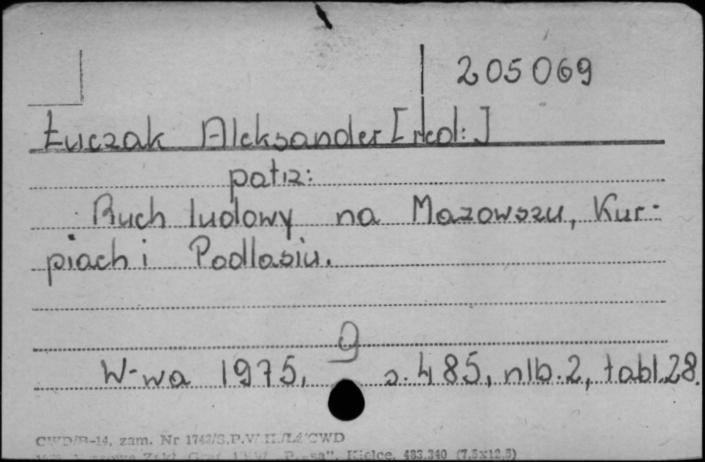 205069
Łuczak Aleksander [red:]
patrz:
Ruch ludowy na Mazowszu, Kur-
piach i Podlasiu.
9
W-wa 1975, s. 485, nlb. 2, tabl. 28.
CWD/B-14, zam. Nr 1742/S.P.W
Kielce, 483.340 (7,5x12,5)